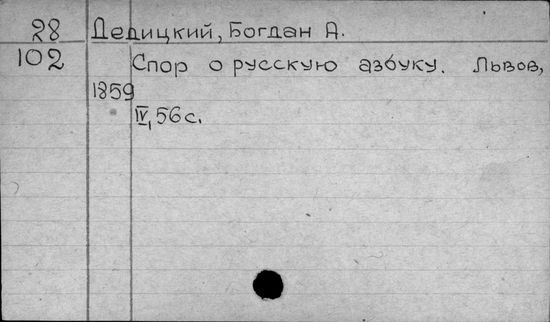 28 Дедицкий, Богдан А.
102 Спор о русскую азбуку. Львов,
1859
IV, 56 с.